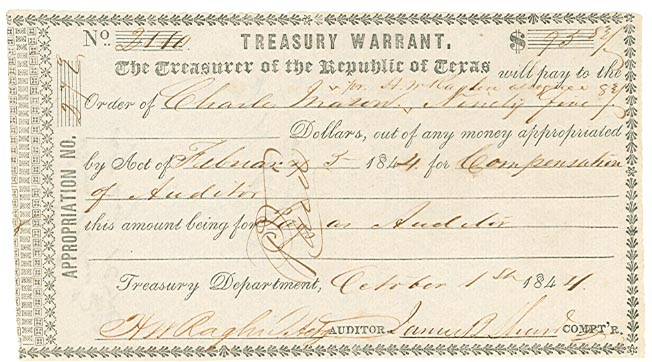 No. 2110 TREASURY WARRANT. $ 95 83/
The Treasurer of the Republic of Texas will pay to the
Order of Charles Mason Ninety five 83/
Dollars, out of any money appropriated
by Act of February 5 1844 for Compensation
of Auditor
this amount being for Pay as Auditor
Treasury Department, October 1st 1844
AUDITOR James B COMPT'R.
APPROPRIATION NO. 272